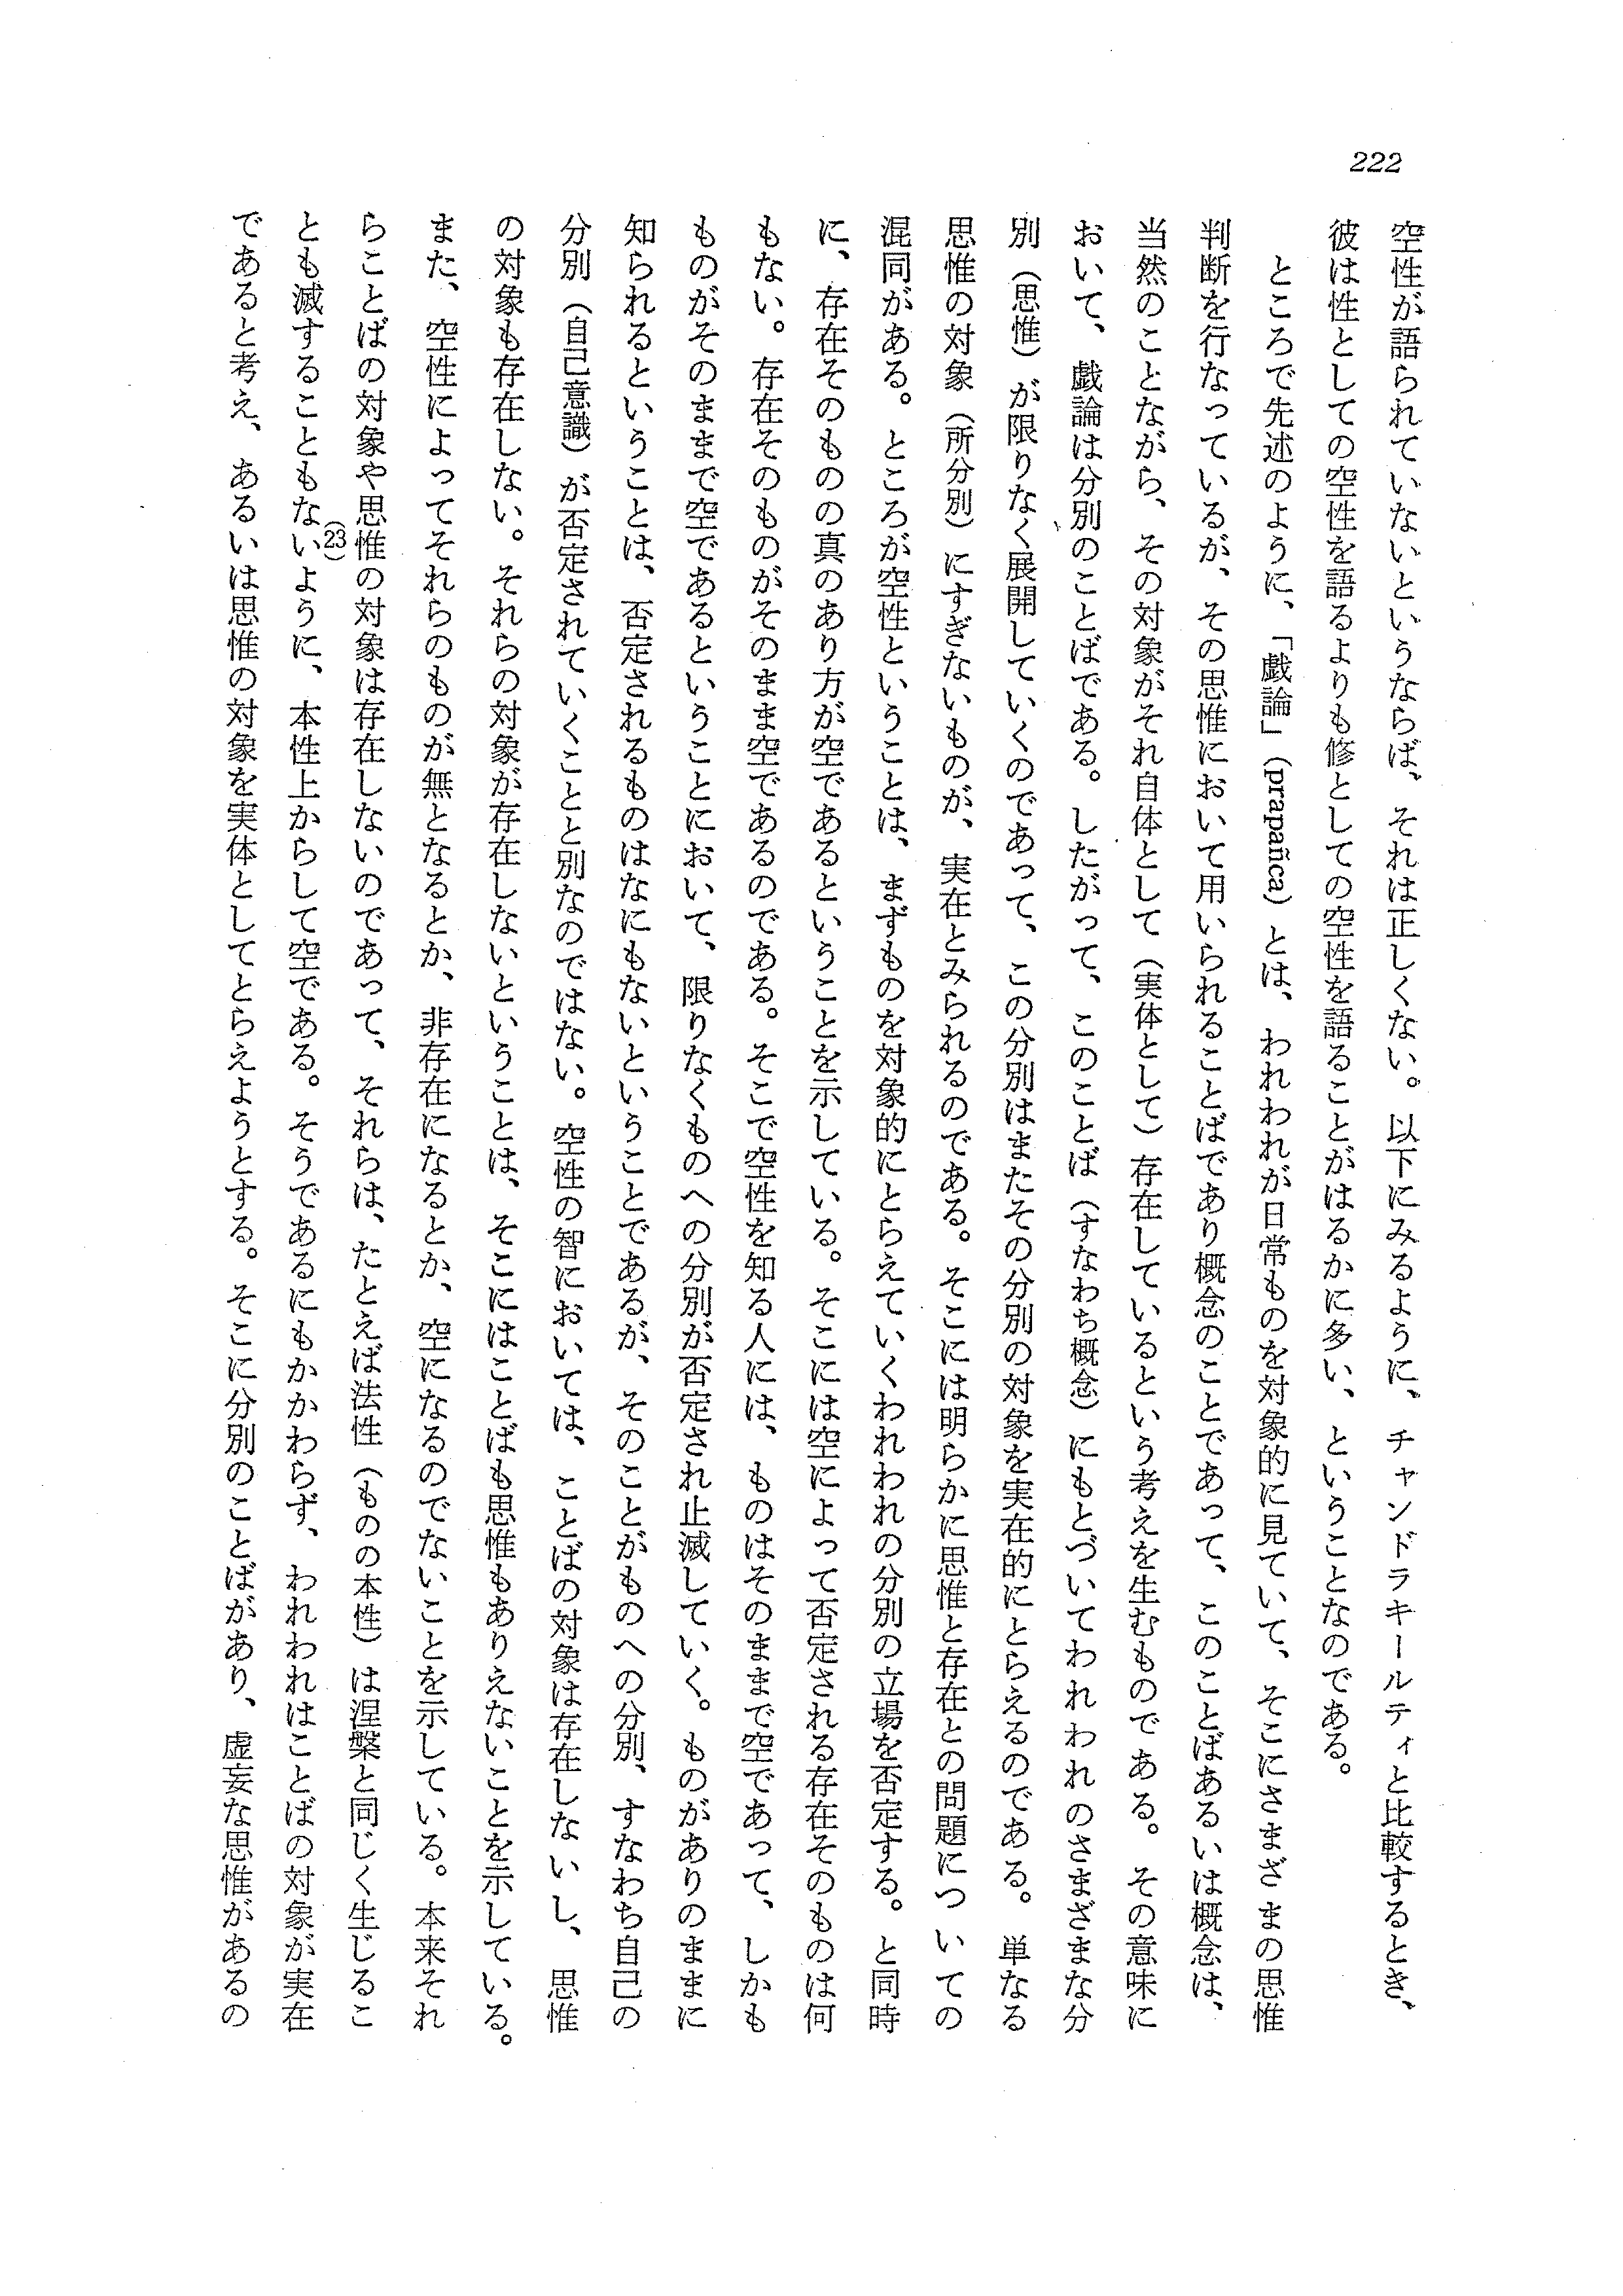 222
空性が語られていないというならば、それは正しくない。以下にみるように、チャンドラキールティと比較するとき、
彼は性としての空性を語るよりも修としての空性を語ることがはるかに多い、ということなのである。
ところで先述のように、「戯論」(prapañca)とは、われわれが日常ものを対象的に見ていて、そこにさまざまの思惟
判断を行なっているが、その思惟において用いられることばであり概念のことであって、このことばあるいは概念は、
当然のことながら、その対象がそれ自体として(実体として)存在しているという考えを生むものである。その意味に
おいて、戯論は分別のことばである。したがって、このことば(すなわち概念)にもとづいてわれわれのさまざまな分
別(思惟)が限りなく展開していくのであって、この分別はまたその分別の対象を実在的にとらえるのである。単なる
思惟の対象(所分別)にすぎないものが、実在とみられるのである。そこには明らかに思惟と存在との問題についての
混同がある。ところが空性ということは、まずものを対象的にとらえていくわれわれの分別の立場を否定する。と同時
に、存在そのものの真のあり方が空であるということを示している。そこには空によって否定される存在そのものは何
もない。存在そのものがそのまま空であるのである。そこで空性を知る人には、ものはそのままで空であって、しかも
ものがそのままで空であるということにおいて、限りなくものへの分別が否定され止滅していく。ものがありのままに
知られるということは、否定されるものはなにもないということであるが、そのことがものへの分別、すなわち自己の
分別(自己意識)が否定されていくことと別なのではない。空性の智においては、ことばの対象は存在しないし、思惟
の対象も存在しない。それらの対象が存在しないということは、そこにはことばも思惟もありえないことを示している。
また、空性によってそれらのものが無となるとか、非存在になるとか、空になるのでないことを示している。本来それ
らことばの対象や思惟の対象は存在しないのであって、それらは、たとえば法性(ものの本性)は涅槃と同じく生じるこ
とも滅することもない(23)ように、本性上からして空である。そうであるにもかかわらず、われわれはことばの対象が実在
であると考え、あるいは思惟の対象を実体としてとらえようとする。そこに分別のことばがあり、虚妄な思惟があるの